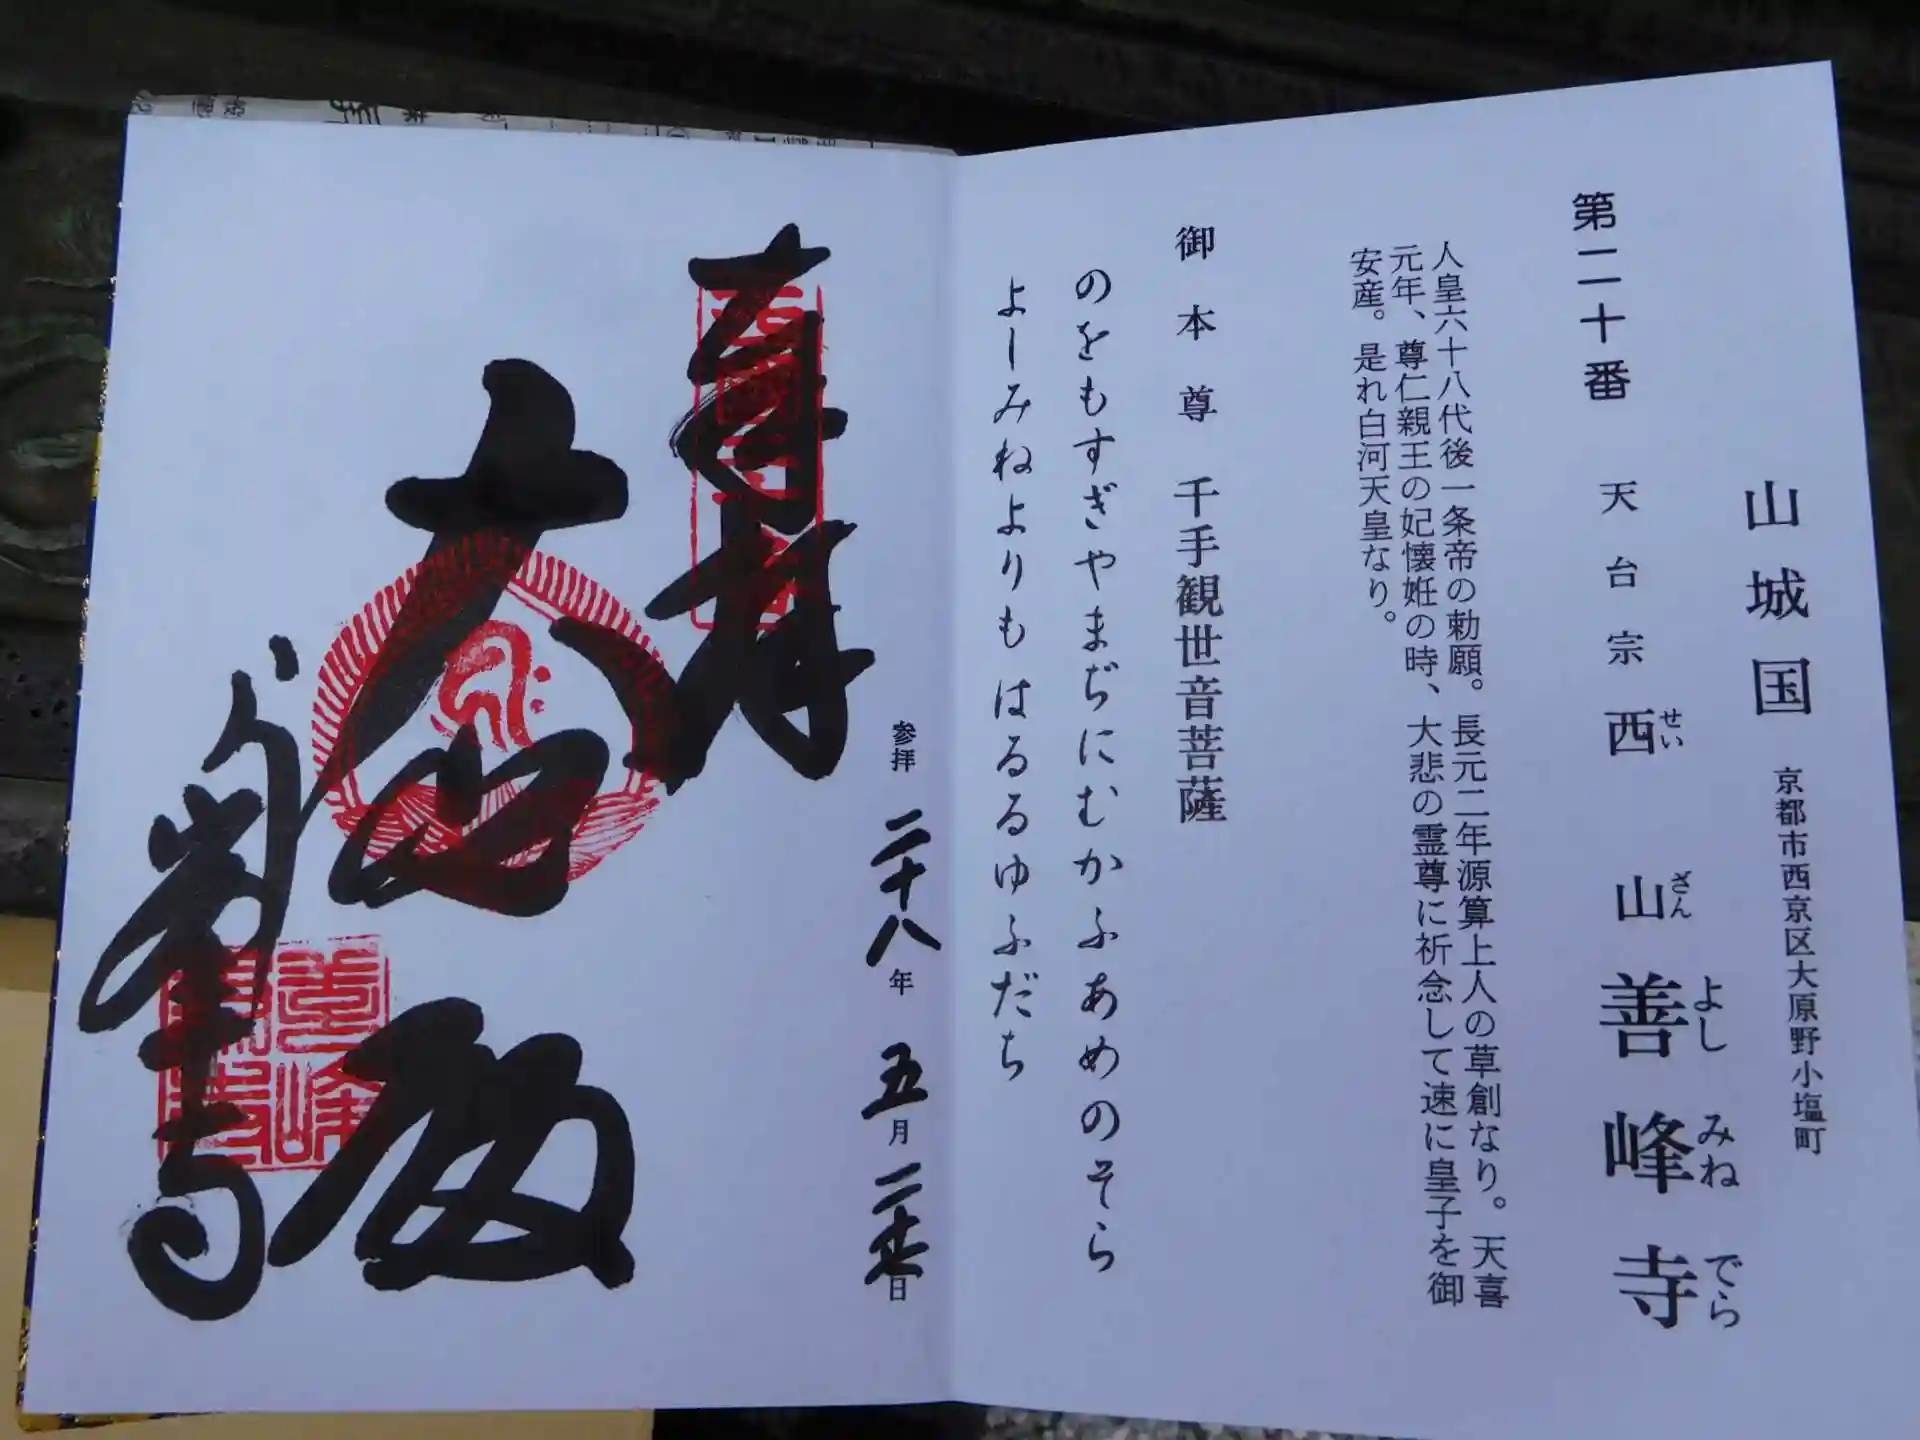 山城国 京都市西京区大原野小塩町
第二十番 天台宗 西山 善峰寺
せい ざん よし みね でら
人皇六十八代後一条帝の勅願。長元二年源算上人の草創なり。天喜
元年、尊仁親王の妃懐妊の時、大悲の霊尊に祈念して速に皇子を御
安産。是れ白河天皇なり。
御本尊 千手観世音菩薩
のをもすぎやまぢにむかふあめのそら
よしみねよりもはるるゆふだち
参拝 二十八年 五月 日
奉拝
大悲殿
善峯寺